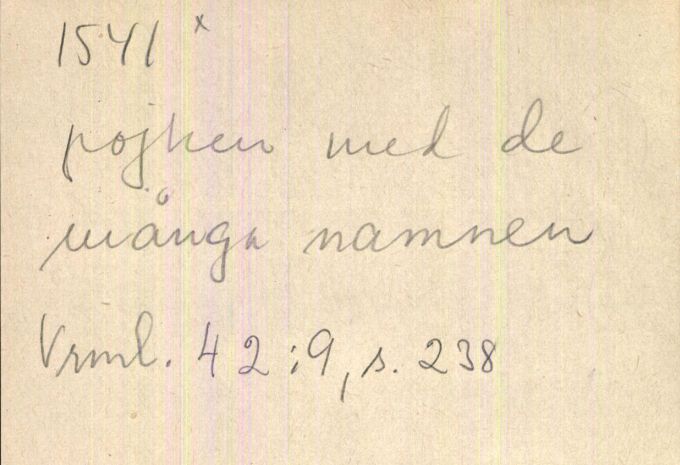 1541 x
pojken med de
många namnen
Vrml. 42:9, s. 238